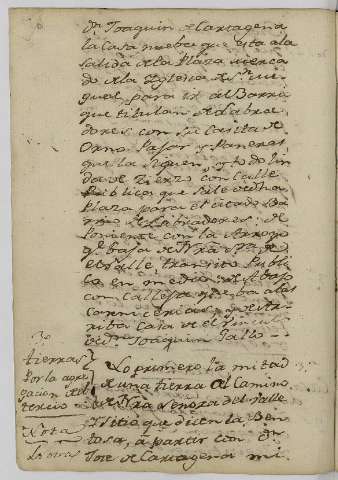 Dn. Joaquin de Cartagena
la Casa nueba que esta a la
salida de la Plaza acerca
de la Yglesia de Sn. Mi
guel, para ir al Barri
que titulan de Labra
dores con su Casita de
Orno Pajar y Paneras,
que la siguen, y todo lin
da de Zierzo con Calle
Publica, que sale de dha
Plaza para el citado Ba
rrio de Labradores: de
Poniente con la Arroyo
qe. baja de Nra.
el Valle, transito Publi
co en medio: de Abajo
con Calleja qe. ba a las
Carnicerias, y de Arri
ba Casa de el Vinculo
de Dn. Joaquin Gallo
3o
tierras
Por la agre
gacion del
tercio
Nota
Lo primero la mitad
de una tierra al Camino
de Nra. Señora del Valle
Sitio que dicen la Ben
tosa, a partir con Dn.
Jose de Cartagena mi